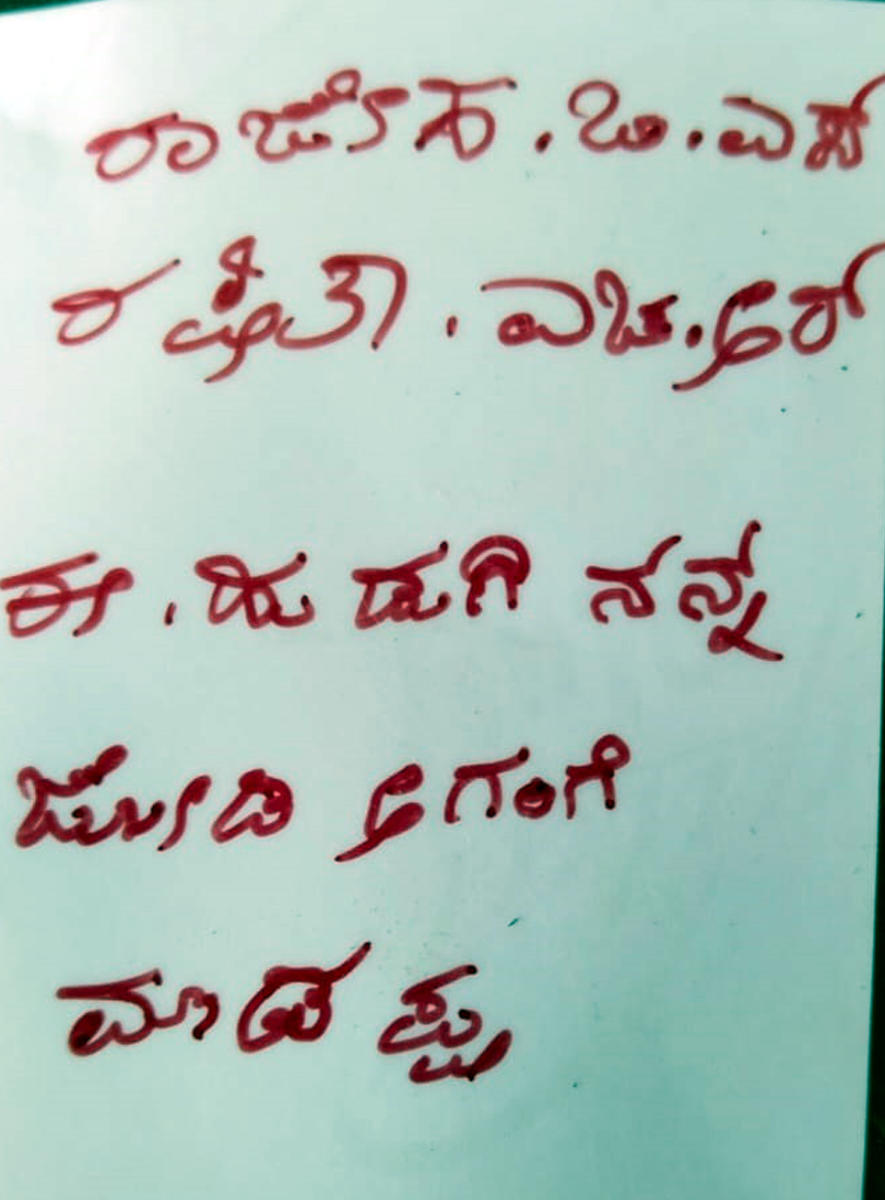 ರಾಜೇಶ.ಬಿ.ಎಸ್
ರಷ್ಮಿತಾ.ಎಚ್.ಆರ್
ಈ.ಹುಡುಗಿ ನನ್ನ
ಜೋಡಿ ಆಗಂಗೆ
ಮಾಡಪ್ಪ